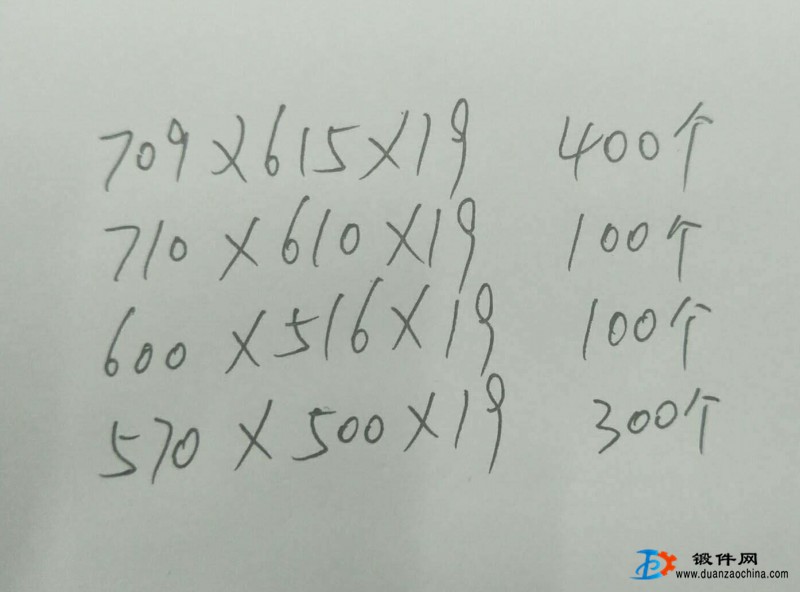 709×615×19 400个
710×610×19 100个
600×516×19 100个
570×500×19 300个
锻件网
www.duanzaochina.com